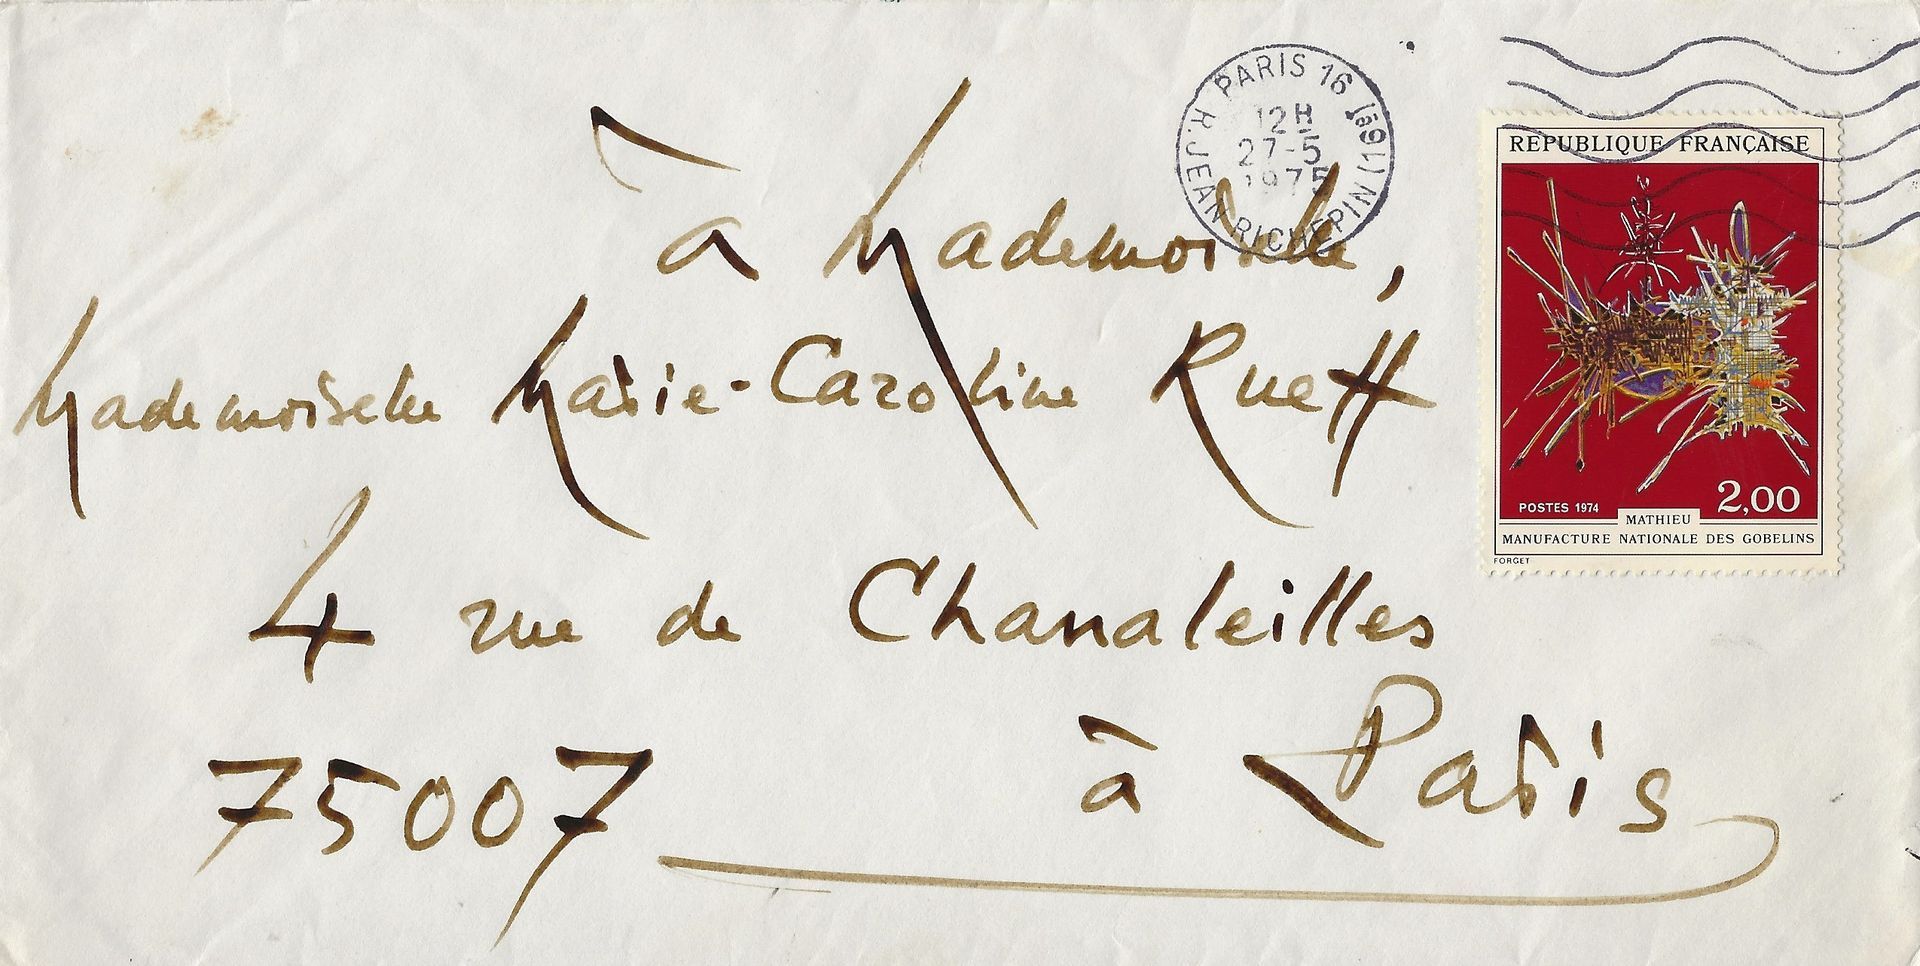 PARIS 16
12H
27-5
1975
R. JEAN RICHEPIN (16e)
à Mademoiselle,
Mademoiselle Marie-Caroline Rueff
4 rue de Chanaleilles
75007 à Paris
RÉPUBLIQUE FRANÇAISE
POSTES 1974 2,00
MATHIEU
MANUFACTURE NATIONALE DES GOBELINS
FORGET